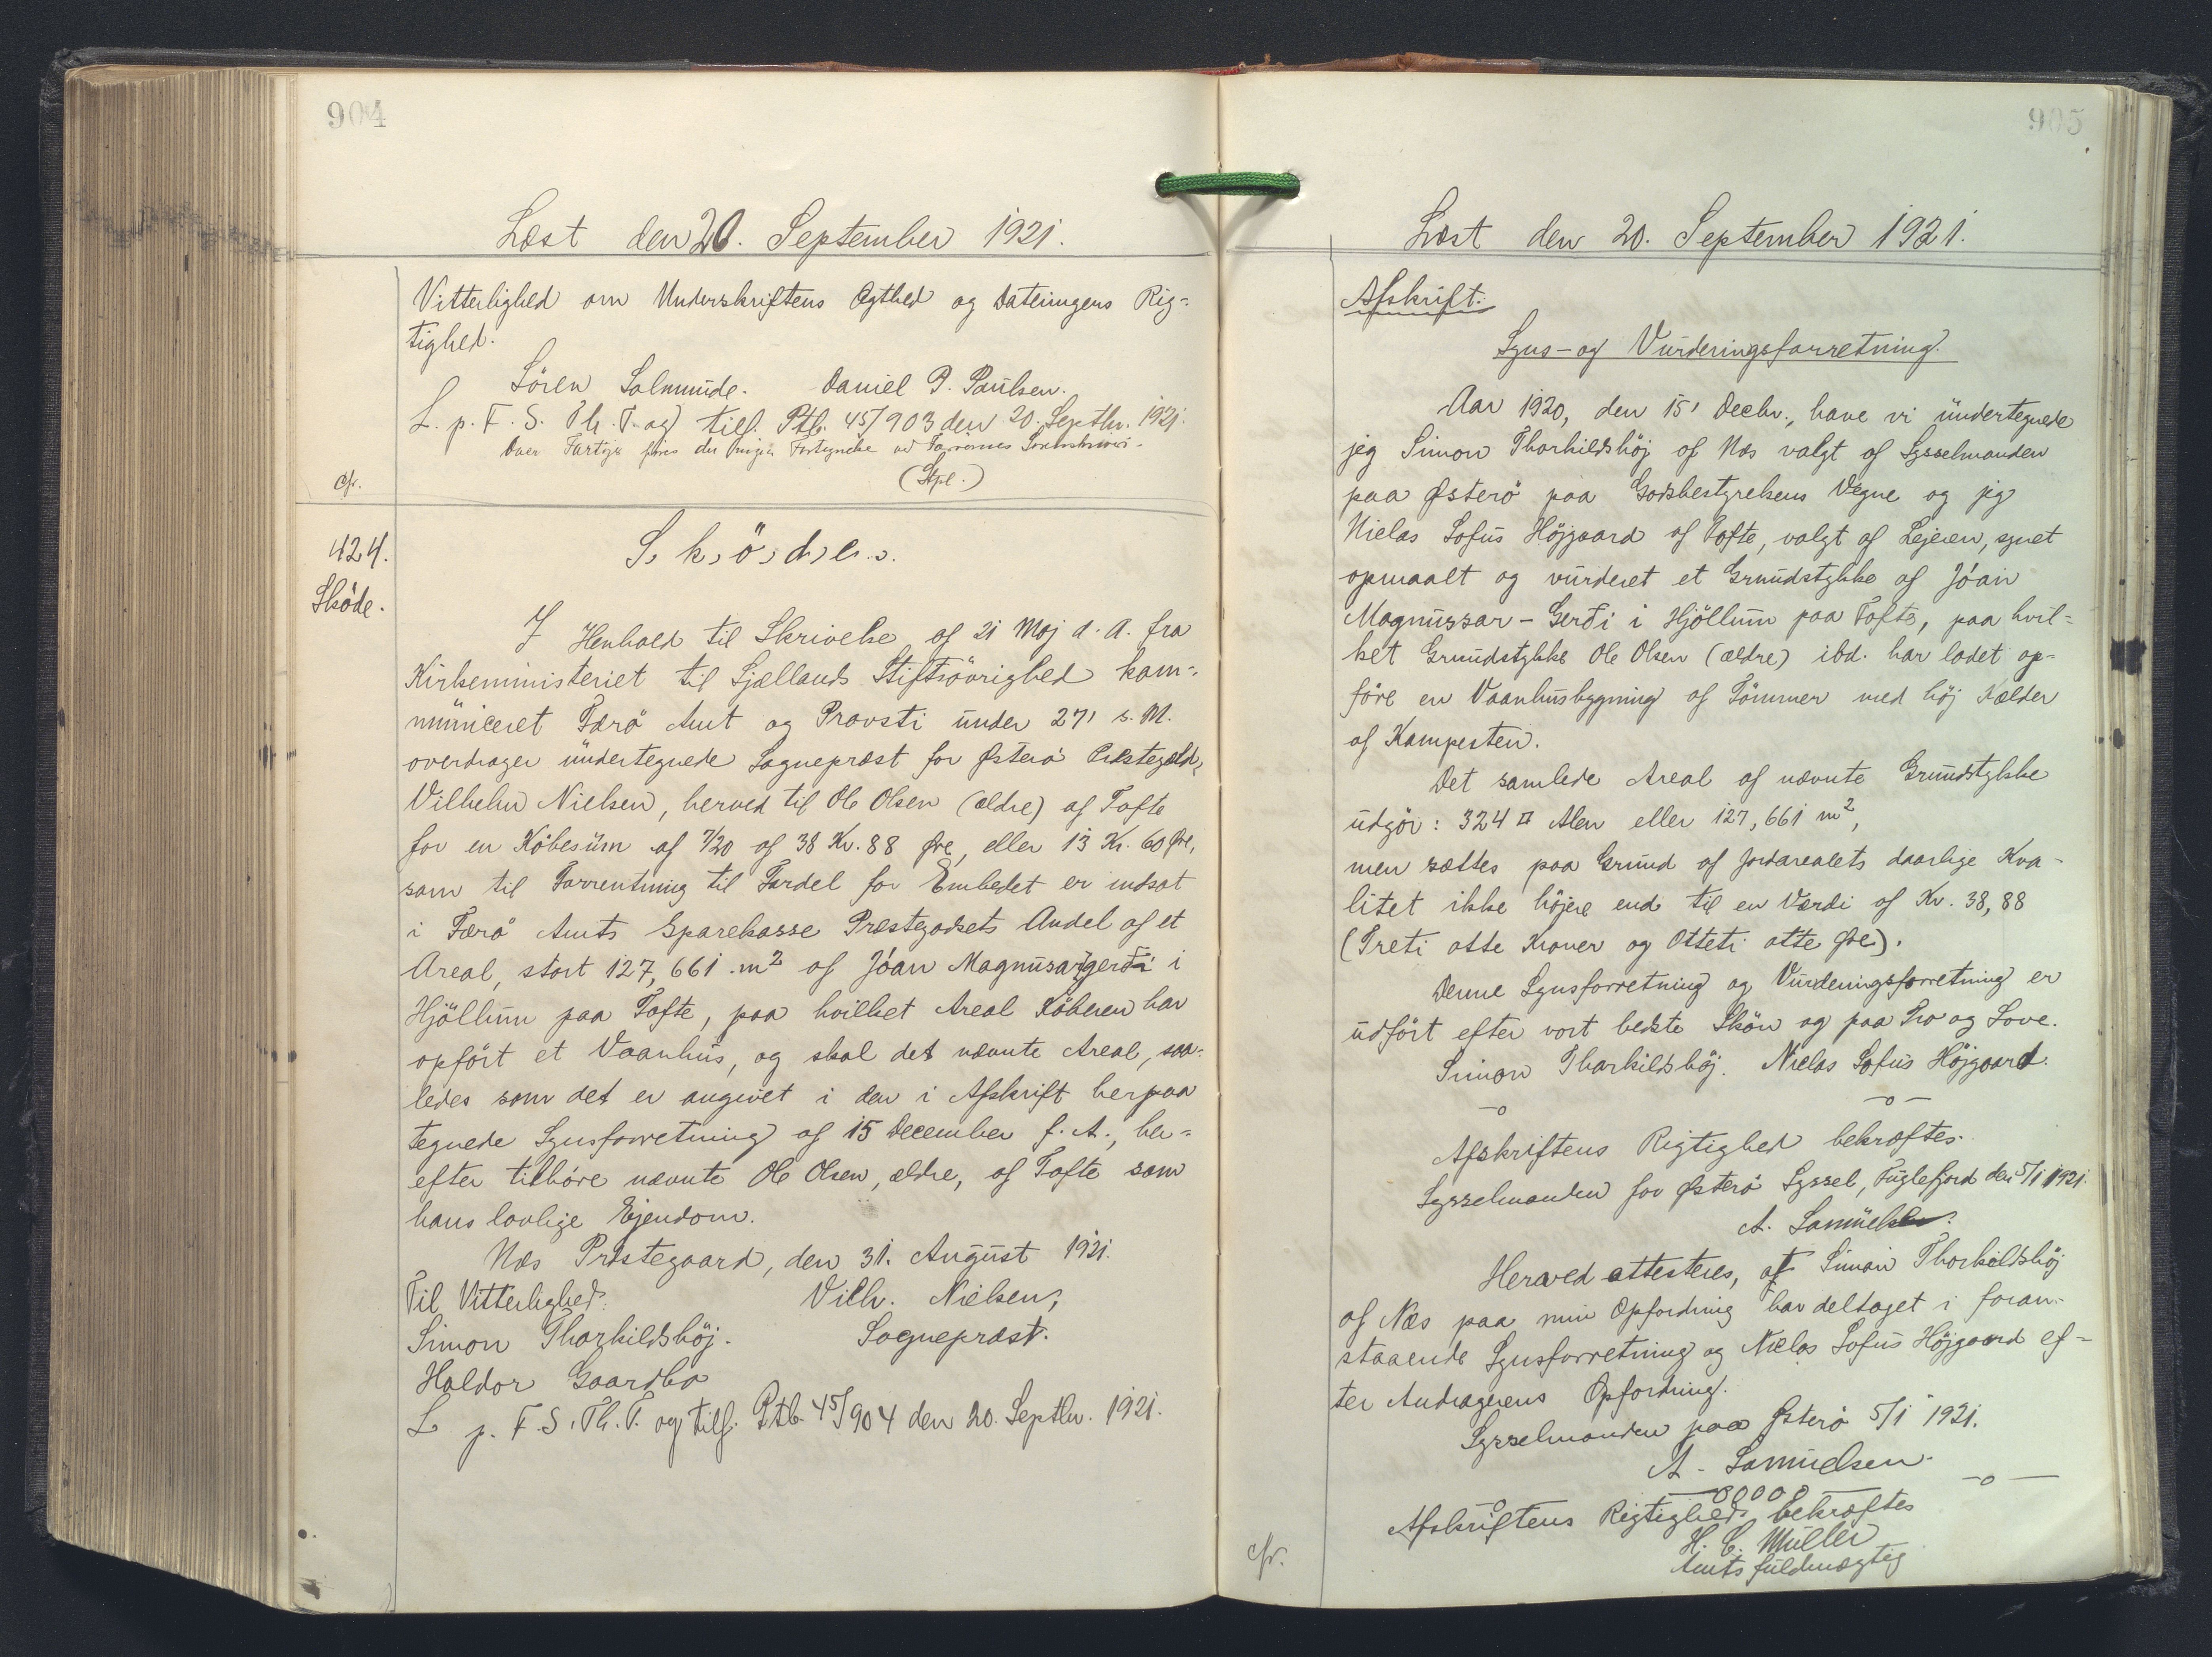 904
Læst den 20. September 1921.
Vitterlighed om Underskriftens Ægthed og Dateringens Rig-
tighed.
Sören Salmunde. Daniel P. Paulsen.
L. p. F. S. Th. T. og tilf. Ptb. 45/903 den 20. Septbr. 1921.
Over Fartöjer föres der ingen Fortegnelse ved Færöernes
(Stpl.)
cfr.
424.
Sköde.
Sköde.
I Henhold til Skrivelse af 21 Maj d. A. fra
Kirkeministeriet til Sjællands Stiftsövrighed kom-
municeret Færö Amt og Provsti under 27' s. M.
overdrager undertegnede Sognepræst for Østerö Præstegæld,
Vilhelm Nielsen, herved til Ole Olsen (ældre) af Tofte
for en Köbesum af 7/20 af 38 Kr. 88 Øre, eller 13 Kr. 60 Øre,
som til Forrentning til Fordel for Embedet er indsat
i Færö Amts Sparekasse Præstegodsets Andel af et
Areal, stort 127,661 m² af Jóan Magnusargerði i
Hjöllum paa Tofte, paa hvilket Areal Köberen har
opfört et Vaanhus, og skal det nævnte Areal, saa-
ledes som det er angivet i den i Afskrift herpaa
tegnede Synsforretning af 15 December f. A., her-
efter tilhöre nævnte Ole Olsen, ældre, af Tofte som
hans lovlige Ejendom.
Næs Præstegaard, den 31. August 1921.
Til Vitterlighed: Vilh. Nielsen,
Simon Thorkildshöj. Sognepræst.
Haldor Gaardbo
L p. F. S. Th. T. og tilf. Ptb. 45/904 den 20. Septbr. 1921.
905
Læst den 20. September 1921.
Afskrift.
Syns- og Vurderingsforretning.
Aar 1920, den 15' Decbr., have vi undertegnede
jeg Simon Thorkildshöj af Næs valgt af Sysselmanden
paa Østerö paa Godsbestyrelsens Vegne og jeg
Nielas Sofus Höjgaard af Tofte, valgt af Lejeren, synet
opmaalt og vurderet et Grundstykke af Jóan
Magnussar-Gerði i Hjöllum paa Tofte, paa hvil-
ket Grundstykke Ole Olsen (ældre) ibd. har ladet op-
före en Vaanhusbygning af Tömmer med höj Kælder
af Kampesten.
Det samlede Areal af nævnte Grundstykke
udgör: 324 □ Alen eller 127,661 m²,
men sættes paa Grund af Jordarealets daarlige Kva-
litet ikke höjere end til en Værdi af Kr. 38,88
(Treti otte Kroner og Otteti otte Øre).
Denne Synsforretning og Vurderingsforretning er
udfört efter vort bedste Skön og paa Tro og Love.
Simon Thorkildshöj. Nielas Sofus Höjgaard.
-o -o-
Afskriftens Rigtighed bekræftes.
Sysselmanden for Østerö Syssel, Fuglefjord den 5/1 1921.
A. Samuelsen.
Herved attesteres, at Simon Thorkildshöj
af Næs paa min Opfordring har deltaget i foran-
staaende Synsforretning og Nielas Sofus Höjgaard ef-
ter Andragerens Opfordring.
Sysselmanden paa Østerö 5/1 1921.
A. Samuelsen.
-o -oooo- -o-
Afskriftens Rigtighed bekræftes
H. C. Müller
Amtsfuldmægtig
cfr.